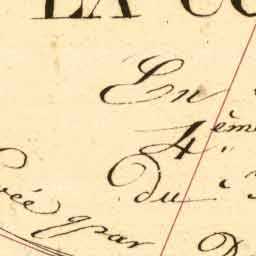 LA CO
En
4ème
du
vée par
D